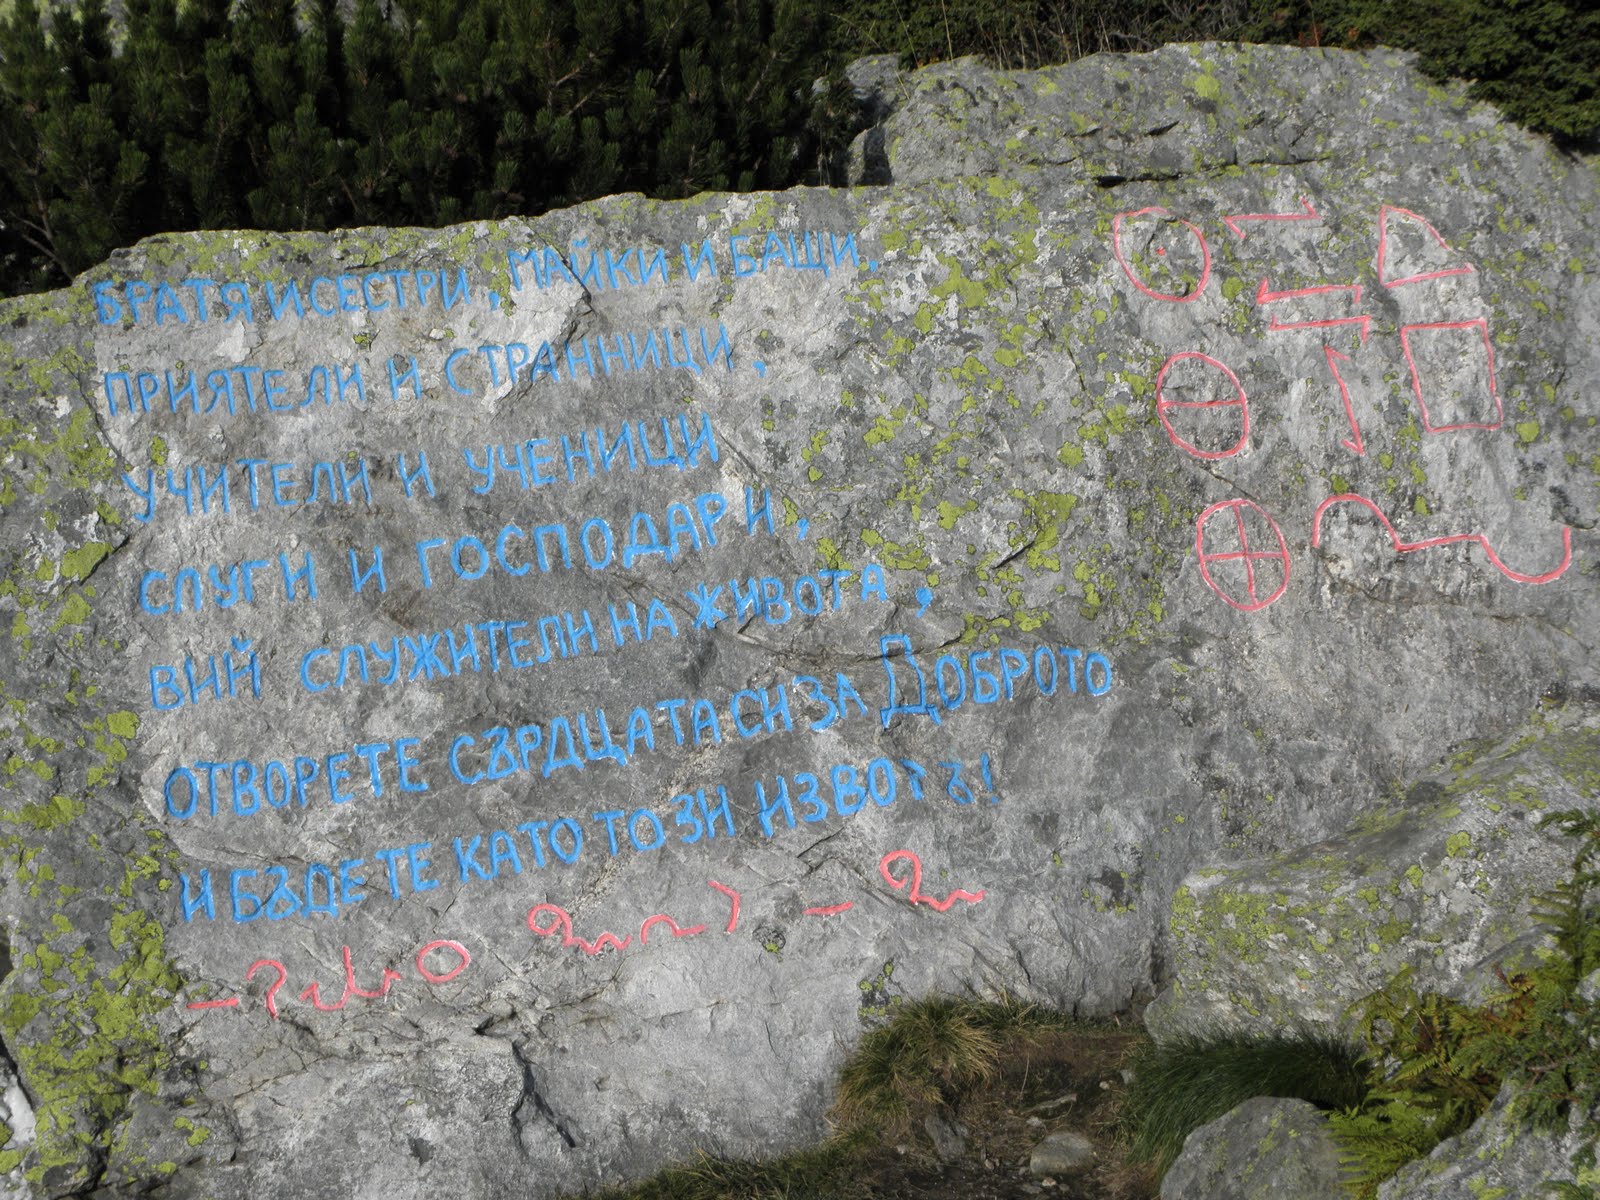 БРАТЯ И СЕСТРИ, МАЙКИ И БАЩИ,
ПРИЯТЕЛИ И СТРАННИЦИ,
УЧИТЕЛИ И УЧЕНИЦИ
СЛУГИ И ГОСПОДАРИ,
ВИЙ СЛУЖИТЕЛИ НА ЖИВОТА,
ОТВОРЕТЕ СЪРДЦАТА СИ ЗА ДОБРОТО
И БЪДЕТЕ КАТО ТОЗИ ИЗВОТЪ!